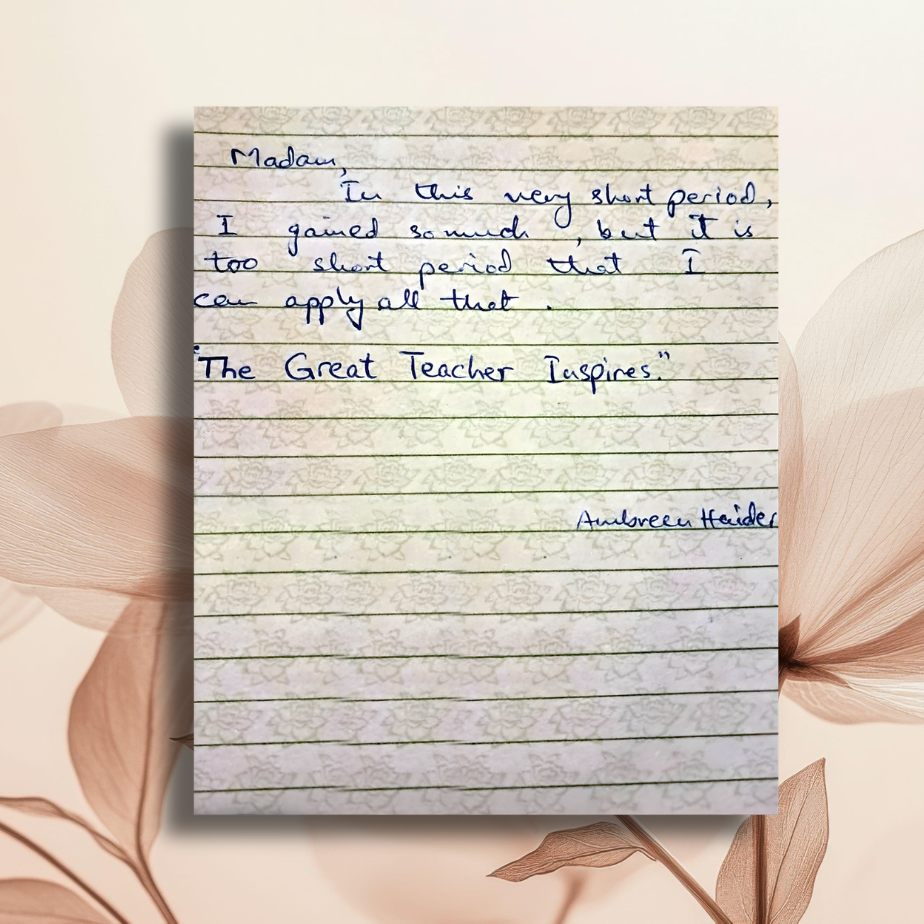 Madam,
In this very short period,
I gained so much , but it is
too short period that I
can apply all that .
"The Great Teacher Inspires."
Ambreen Haider